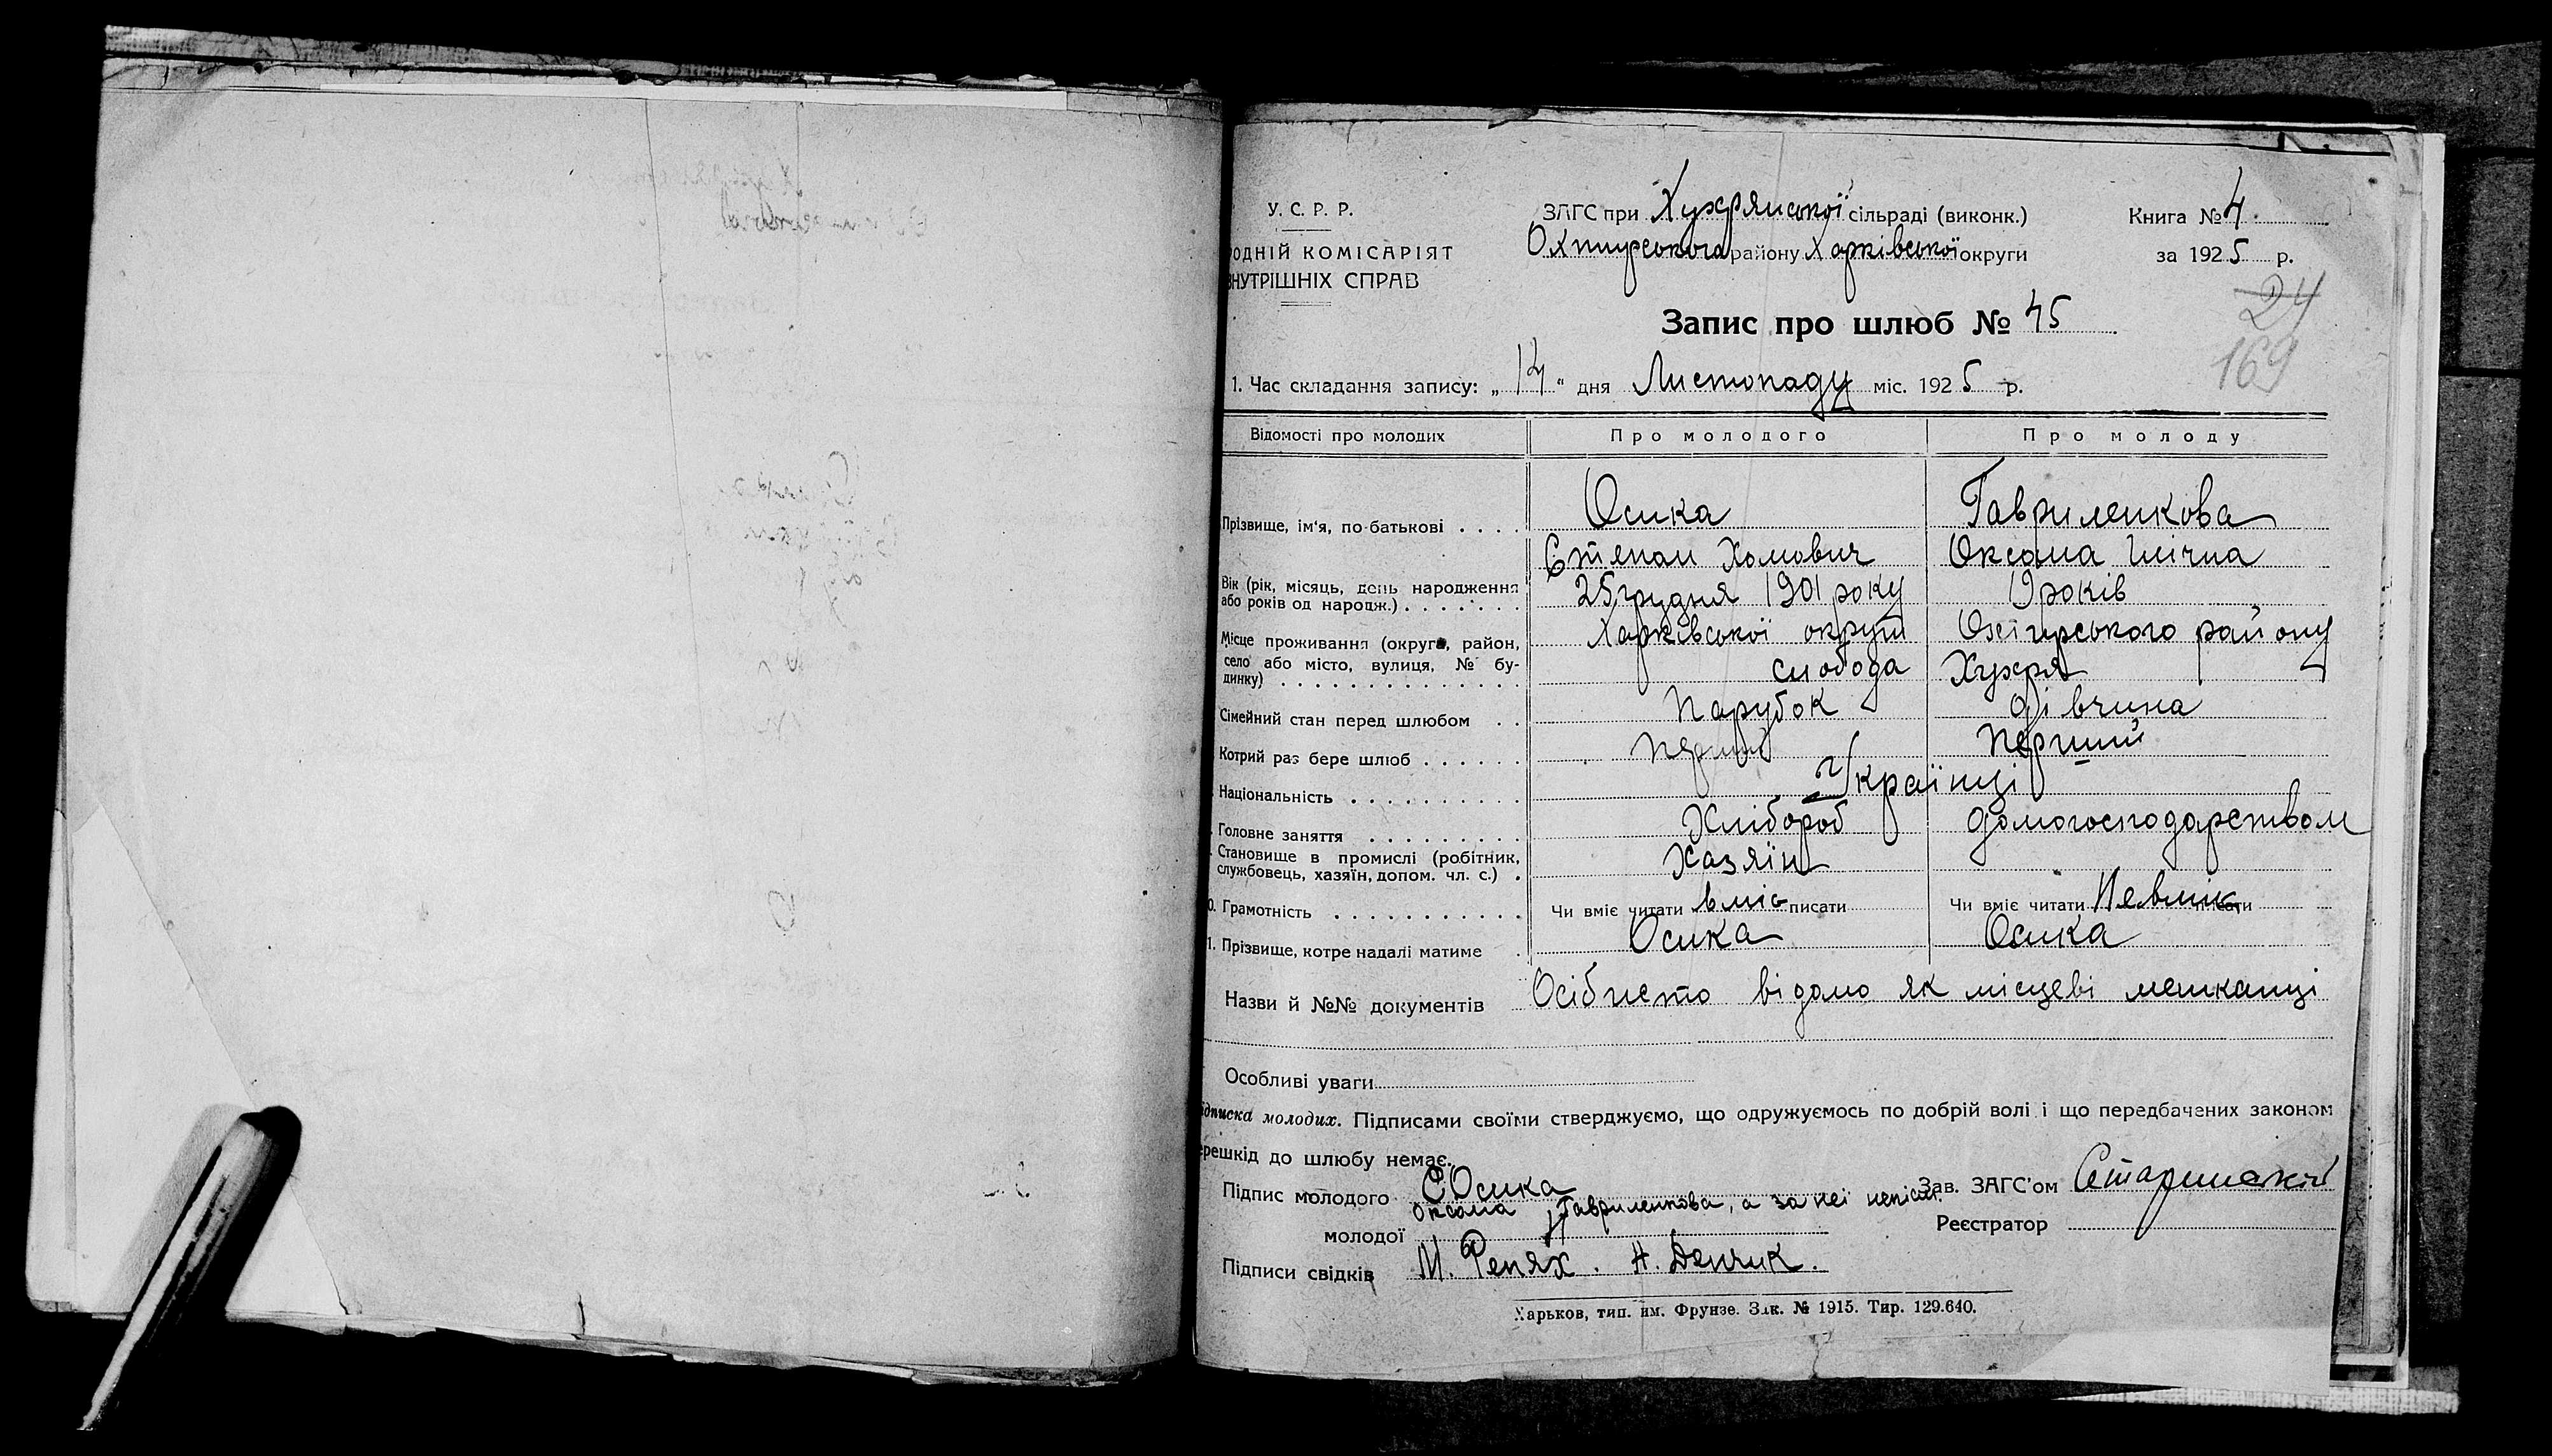 У. С. Р. Р.
ОДНІЙ КОМІСАРІЯТ
НУТРІШНІХ СПРАВ
ЗАГС при Хухрянської сільраді (виконк.)
Охтирського району Харківської округи
Книга № 4
за 1925 р.
24
169
Запис про шлюб № 45
1. Час складання запису: „14“ дня Листопаду міс. 1925 р.
Відомості про молодих Про молодого Про молоду
Прізвище, ім'я, по-батькові . . . . Осика Гавриленкова
Степан Хомович Оксана
Вік (рік, місяць, день народження
або років од народж.) . . . . . . . 25 грудня 1901 року 19 років
Місце проживання (округа, район, Харківської округи Охтирського району
село або місто, вулиця, № бу- слобода Хухря
динку) . . . . . . . . . . . . . .
Сімейний стан перед шлюбом . . Парубок дівчина
Котрий раз бере шлюб . . . . . . перший перший
Національність . . . . . . . . . . Українці
Головне заняття . . . . . . . . . Хлібороб домогосподарством
Становище в промислі (робітник, Хазяїн
службовець, хазяїн, допом. чл. с.) .
0. Грамотність . . . . . . . . . . . Чи вміє читати вміє писати Чи вміє читати Невміє писати
1. Прізвище, котре надалі матиме . Осика Осика
Назви й №№ документів Осібисто відомо як місцеві мешканці
Особливі уваги
ідписка молодих. Підписами своїми стверджуємо, що одружуємось по добрій волі і що передбачених законом
ерешкід до шлюбу немає.
Підпис молодого СОсика
Зав. ЗАГС'ом
Оксана Гавриленкова, а за неї
молодої
Реєстратор
Підписи свідків М. Репях. Н. Денчик.
Харьков, тип. им. Фрунзе. Зак. № 1915. Тир. 129.640.